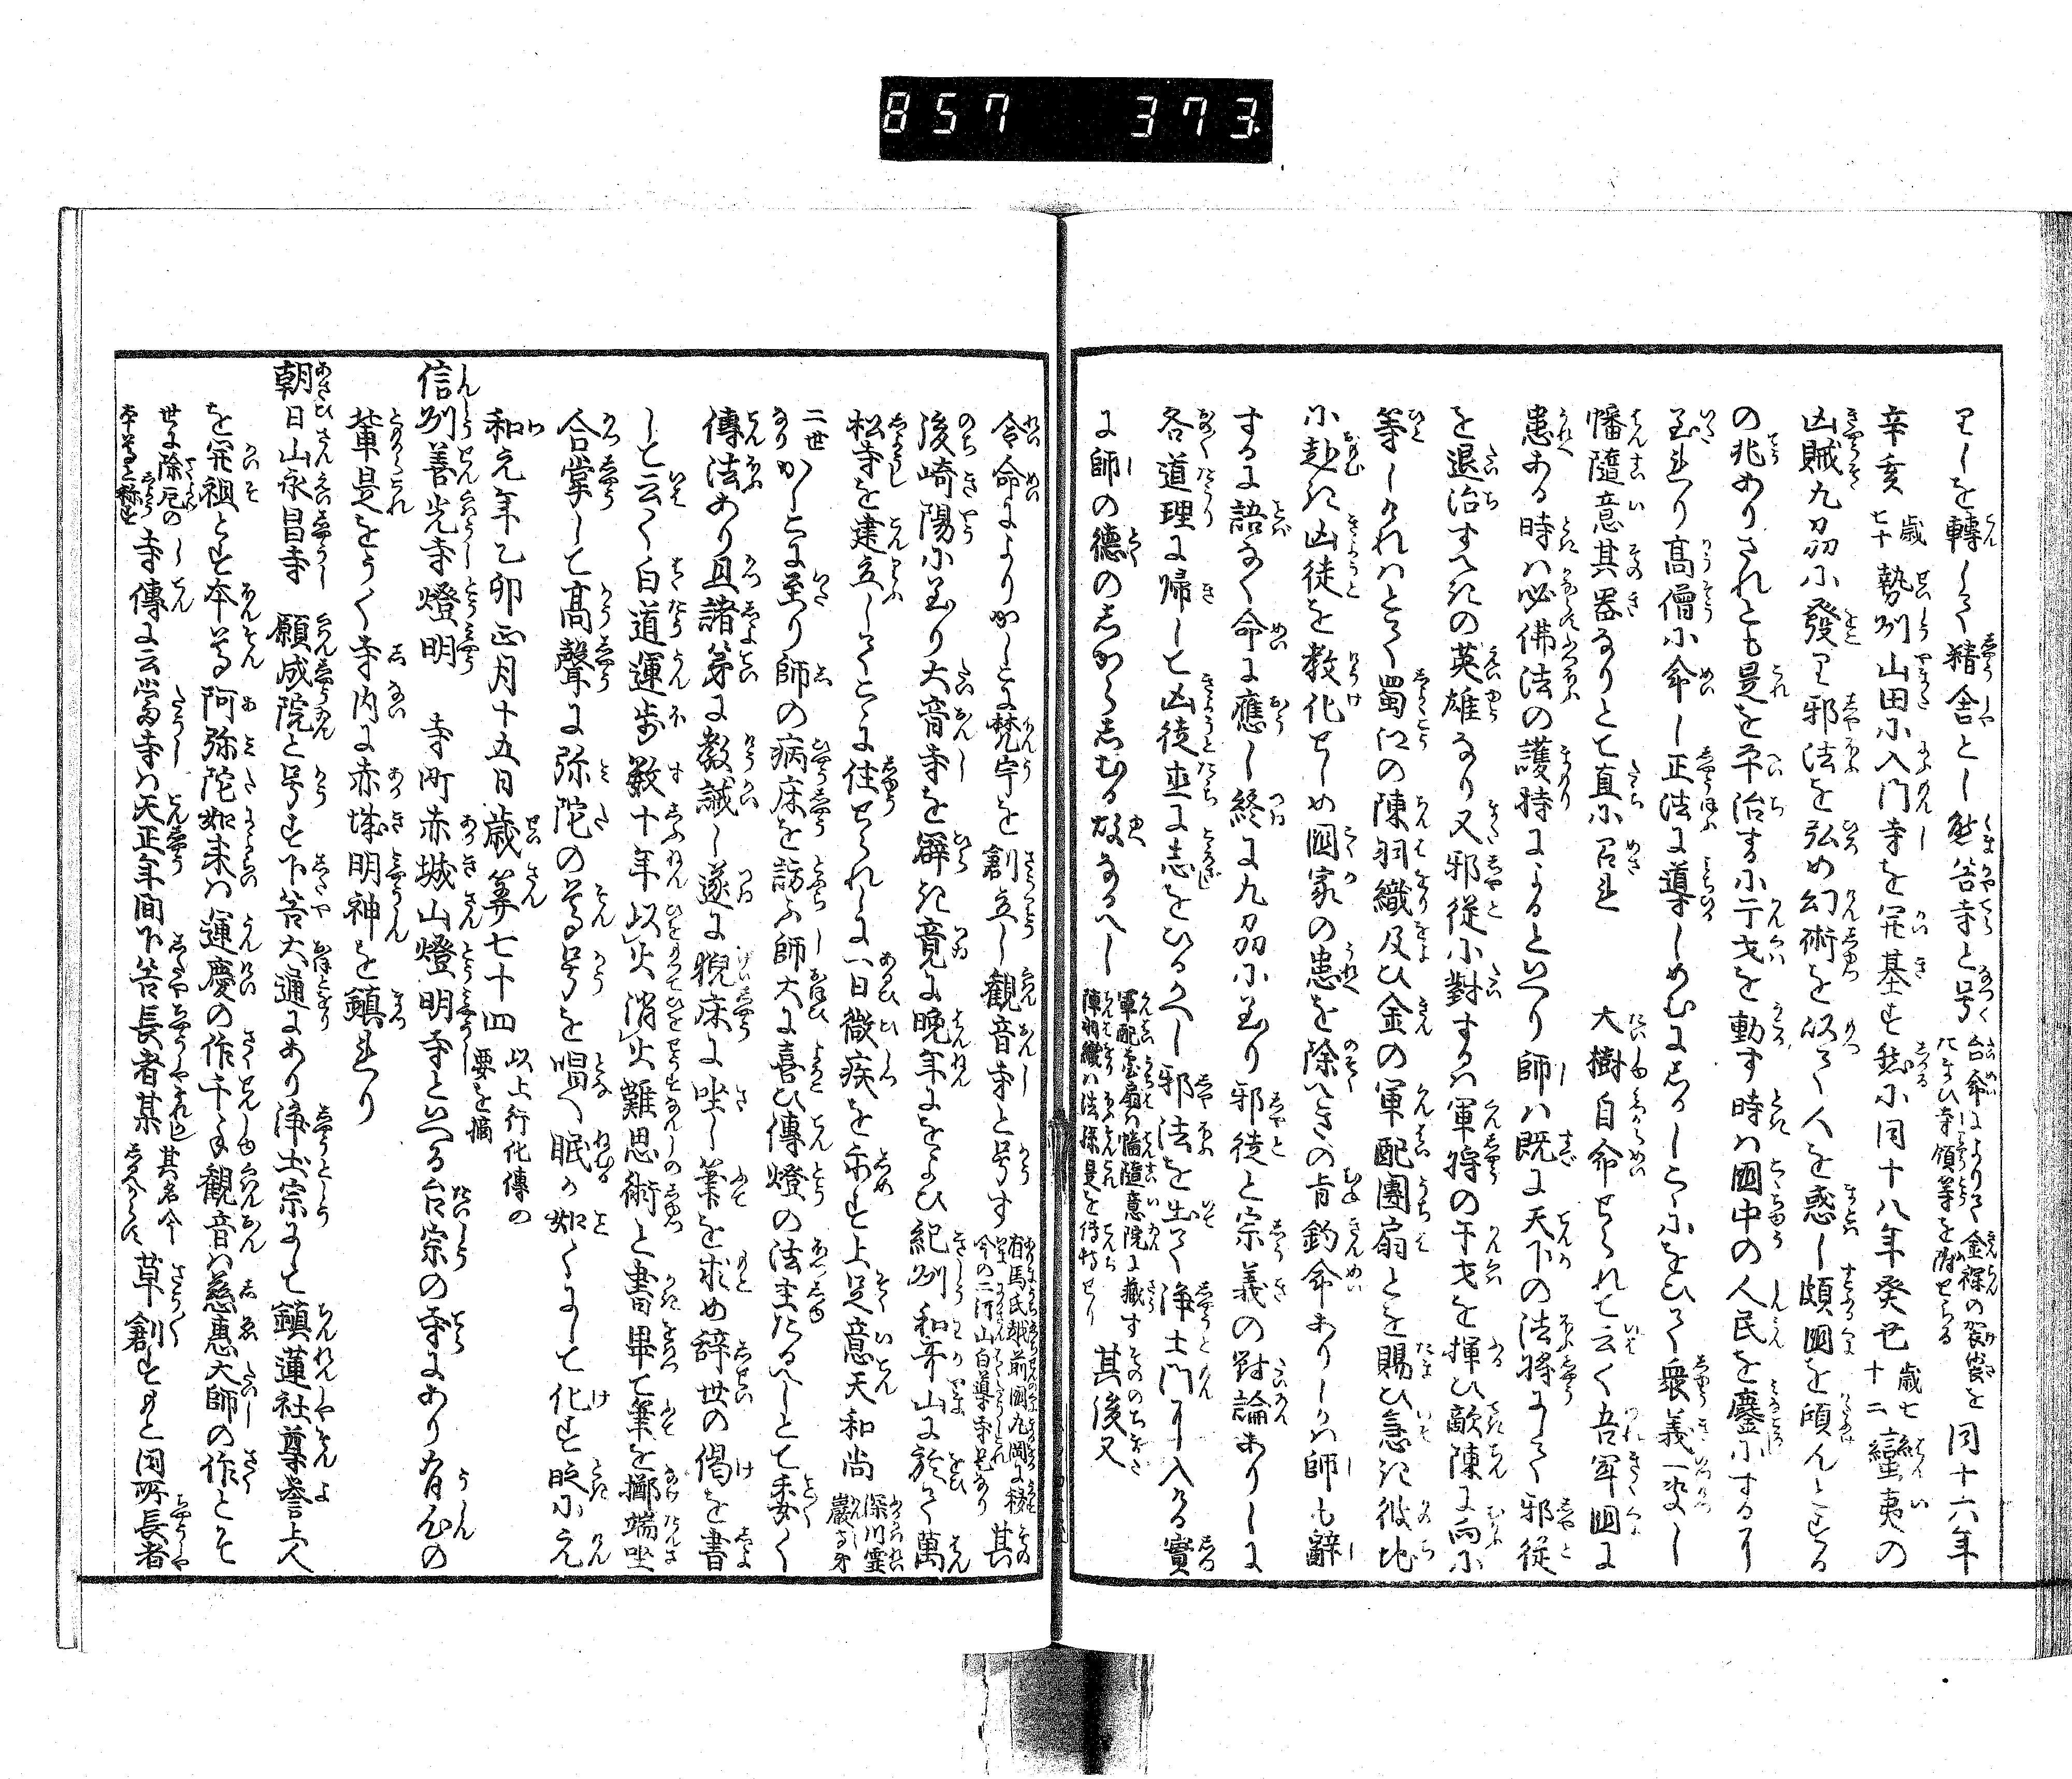 857 373.
りしを轉して精舎とし熊谷寺と号 台命によりて金襴の袈裟を
たまひ寺領等を附せらる 同十六年
辛亥 七十歳 勢州山田に入門寺を開基す然に同十八年癸丑 歳七十二 蠻夷の
凶賊九州に發り邪法を弘め幻術を以て人を惑し頗國を傾んとする
の兆ありされとも是を平治するに干戈を動す時は國中の人民を鏖にするに
至れり高僧に命し正法に導しめむにしかしこゝにをひて衆義一决し
幡隨意其器なりとて直に召れ 大樹自命せられて云く吾軍国に
患ある時は必佛法の護持によると云り師は既に天下の法將にして邪徒
を退治すへきの英雄なり又邪徒に對するは軍將の干戈を揮ひ敵陳に向に
等しけれはとて蜀江の陳羽織及ひ金の軍配團扇とを賜ひ急き彼地
に赴き凶徒を教化せしめ國家の患を除へきの旨鈞命ありしかは師も辭
するに語なく命に應し終に九州に至り邪徒と宗義の對論ありしに
各道理に帰して凶徒直に志をひるかへし邪法を出て浄土門に入る實
に師の德のしからしむる故なるへし 軍配團扇は幡隨意院に藏す
陳羽織は法孫是を侍持せり 其後又
令命によりかしこに梵宇を創立し觀音寺と号す 有馬氏越前國丸岡に移
今の二河山白道寺是なり 其
後崎陽に至り大音寺を辟き竟に晩年にをよひ紀州和哥山に於て萬
松寺を建立してこゝに住せられしに一日微疾を示す上足意天和尚 深川霊
巖寺第
二世
なり かしこに至り師の病床を訪ふ師大に喜ひ傳燈の法主たるへしとて委く
傳法あり且諸弟に教誡し遂に猊床に坐し筆を求め辭世の偈を書
しと云く白道運歩數十年以火消火難思術と書畢て筆を擲端坐
合掌して高聲に弥陀の尊号を唱へ眠か如くにして化す時に元
和元年乙卯正月十五日歳筭七十四 以上行化傳の
要を摘
信州善光寺燈明 寺町赤城山燈明寺といへる台宗の寺にあり有信の
輩是をうく寺内に赤城明神を鎮れり
朝日山永昌寺 願成院と号す下谷大通にあり浄土宗にして鎮蓮社尊譽上人
を開祖とす本尊阿弥陀如来は運慶の作千手觀音は慈惠大師の作とそ
世に除厄の
本尊と称す 寺傳に云當寺は天正年間下谷長者某 其名今
しれす 草創すもと同所長者